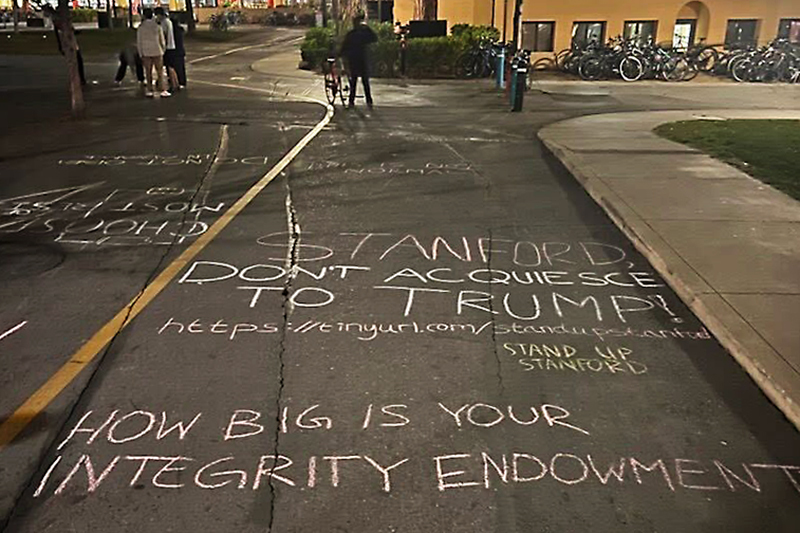 STANFORD,
DON'T ACQUIESCE
TO TRUMP!
https://tinyurl.com/standupstanford
STAND UP
STANFORD
HOW BIG IS YOUR
INTEGRITY ENDOWMENT